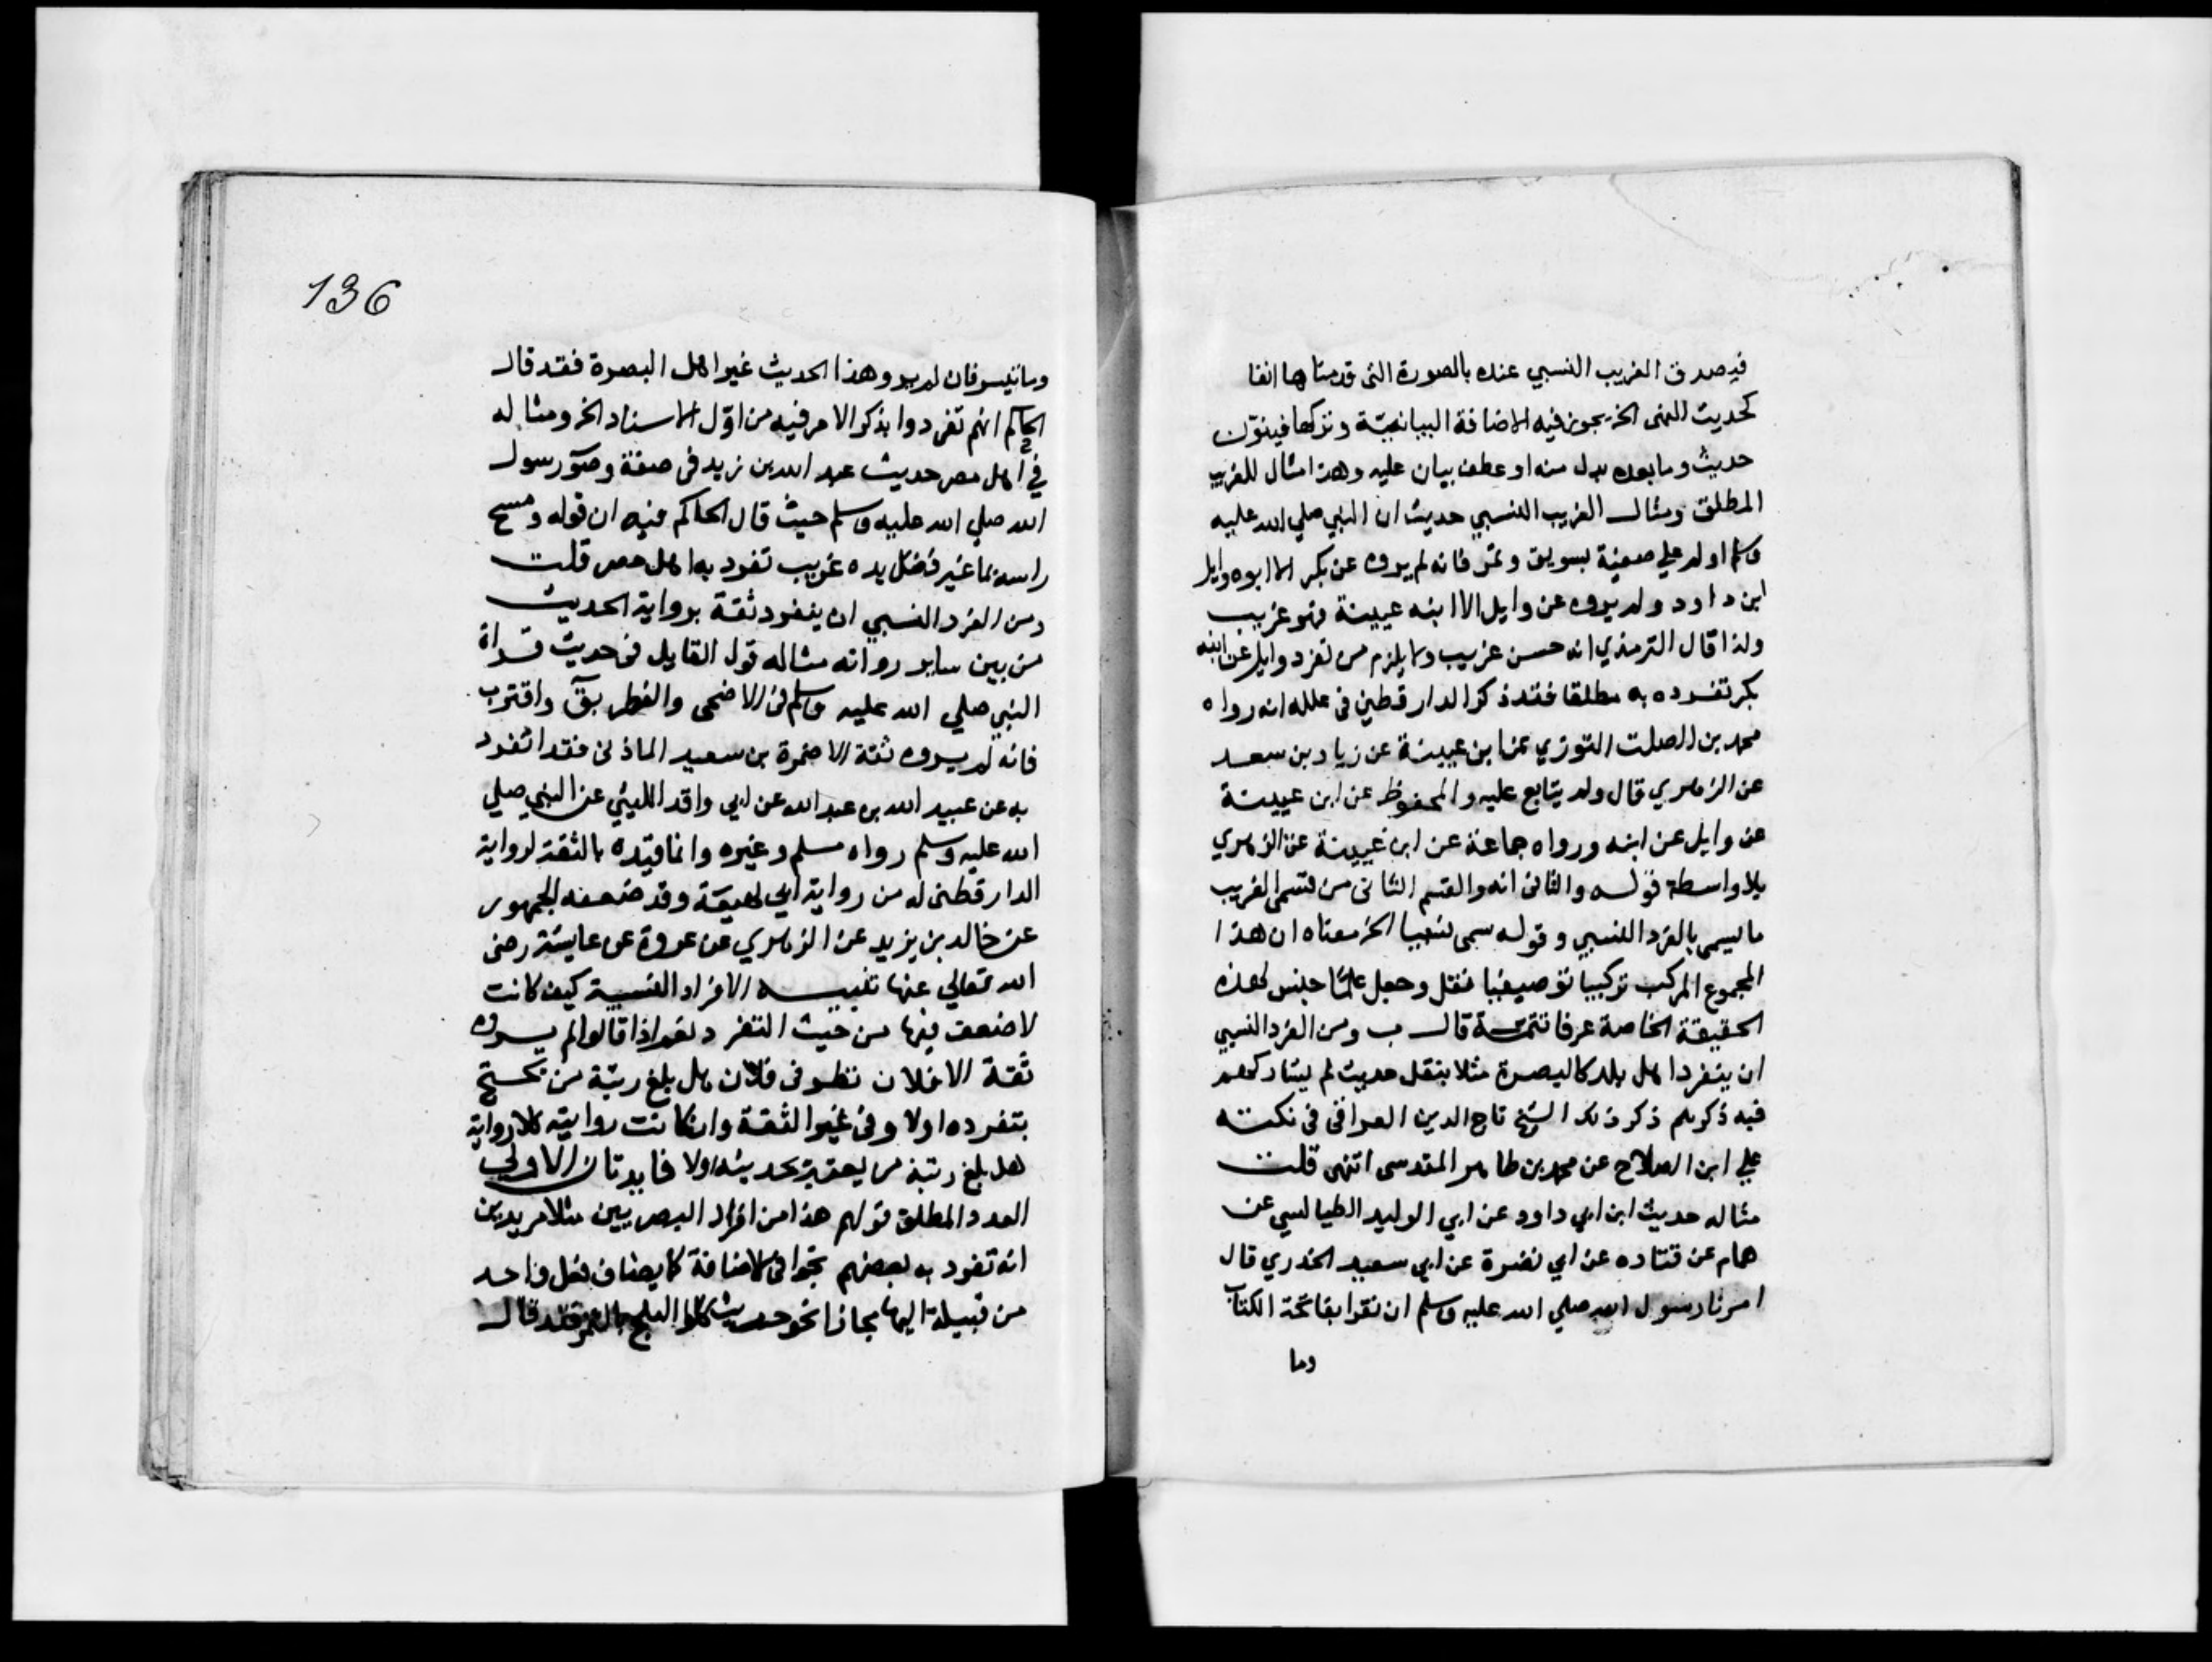 فيصدق الغريب النسبي عنده بالصورة التى قدمناها انفا
كحديث النهى الخ يجوز فيه الاضافة البيانية وتركها فينون
حديث وما بعده بدل منه او عطف بيان عليه وهذا مثال للغريب
المطلق ومثال الغريب النسبي حديث ان النبي صلي الله عليه
وسلم اولم علي صفية بسويق وتمر فانه لم يروه عن بكر الا ابوه وايل
ابن داود ولم يروه عن وايل الا ابنه عيينة فهو غريب
ولذا قال الترمذي انه حسن غريب ولا يلزم من تفرد وايل عن ابنه
بكر تفرده به مطلقا فقد ذكر الدارقطني في علله انه رواه
محمد بن الصلت التوزي عن ابن عيينة عن زياد بن سعد
عن الزهري قال ولم يتابع عليه والمحفوظ عن ابن عيينة
عن وايل عن ابنه ورواه جماعة عن ابن عيينة عن الزهري
بلا واسطة قوله والثانى انه والقسم الثانى من قسمى الغريب
ما يسمى بالفرد النسبي وقوله سمى نسبيا الخ معناه ان هذا
المجموع المركب تركيبا توصيفيا فنقل وجعل علما جنس لهذه
الحقيقة الخاصة عرفا تتمة قال ب ومن الفرد النسبي
ان ينفرد اهل بلد كالبصرة مثلا بنقل حديث لم يشاركهم
فيه ذكرهم ذكر ذلك الشيخ تاج الدين العراقى فى نكته
علي ابن الصلاح عن محمد بن طاهر المقدسى انتهى قلت
مثاله حديث ابن ابي داود عن ابي الوليد الطيالسي عن
همام عن قتاده عن ابي نضرة عن ابي سعيد الخدري قال
امرنا رسول الله صلي الله عليه وسلم ان نقرا بفاتحة الكتاب
وما
136
وما تيسر فان لم يرو هذا الحديث غير اهل البصرة فقد قال
الحاكم انهم تفردوا بذكر الامر فيه من اول الاسناد الخ ومثاله
في اهل مصر حديث عبد الله بن زيد فى صفة وضو رسول
الله صلي الله عليه وسلم حيث قال الحاكم فيه ان قوله ومسح
راسه بما غير فضل يده غريب تفرد به اهل مصر قلت
ومن الفرد النسبي ان ينفرد ثقة برواية الحديث
من بين ساير رواته مثاله قول القايل فى حديث قراة
النبي صلي الله عليه وسلم فى الاضحى والفطر بق واقترب
فانه لم يروه ثقة الا ضمرة بن سعيد الماذنى فقد اتفرد
به عن عبيد الله بن عبد الله عن ابي واقد الليثي عن النبي صلي
الله عليه وسلم رواه مسلم وغيره وانما قيده بالثقة لرواية
الدارقطنى له من رواية ابي لهيعة وقد ضعفه الجمهور
عن خالد بن يزيد عن الزهري عن عروة عن عايشة رضى
الله تعالي عنها تنبيه الافراد النسبية كيف كانت
لا ضعف فيها من حيث التفرد نعم اذا قالوا لم يروه
ثقة الا فلان نظر فى فلان هل بلغ رتبة من يحتج
بتفرده اولا وفى غير الثقة وان كانت روايته كلا رواية
هل بلغ رتبة من يعتبر بحديثه اولا فايدتان الاولي
العدد المطلق قولهم هذا من افراد البصريين مثلا مريدين
انه تفرد به بعضهم تجوا فى الاضافة كما يضاف فعل واحد
من قبيلة اليها مجازا نحو حديث كلوا البلح بالتمر فقد قال